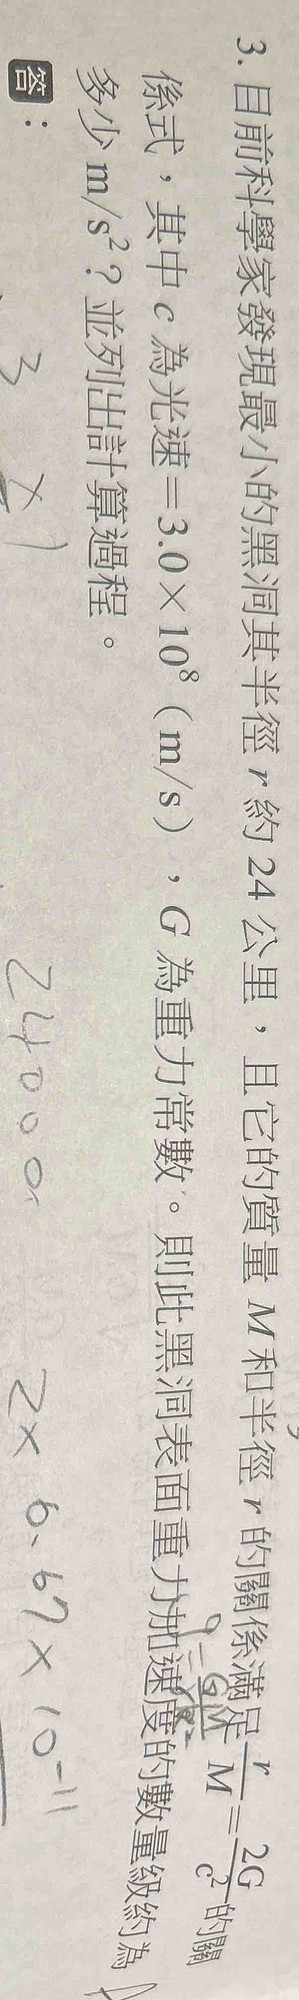 3. 目前科學家發現最小的黑洞其半徑 r 約 24 公里，且它的質量 M 和半徑 r 的關係滿足 r/M = 2G/c² 的關
係式，其中 c 為光速＝3.0×10⁸（m/s），G 為重力常數。則此黑洞表面重力加速度的數量級約為
g = GM/R²
多少 m/s²？並列出計算過程。
答：
3 × 1
24000
2× 6.67×10⁻¹¹